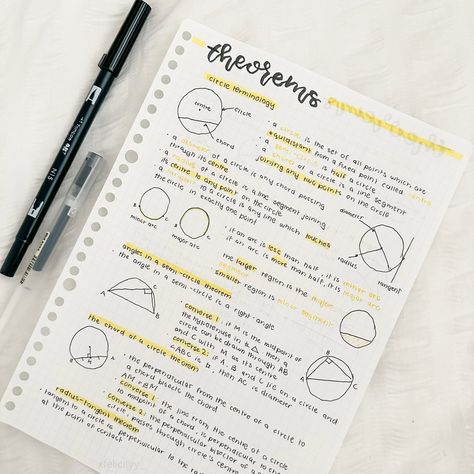 theorems
circle terminology
centre
circle
chord
· a circle is the set of all points which are
equidistant from a fixed point called centre
· a semi circle is half a circle
· a chord of a circle is a line segment
joining any two points on the circle
· a diameter of a circle is any chord passing
through its centre
· a radius of a circle is a line segment joining
its centre to any point on the circle
· a tangent to a circle is any line which touches
the circle in exactly one point
diameter
radius
tangent
A
B
minor arc
A
B
major arc
· if an arc is less than half, it is minor arc
if an arc is more than half, it is major arc
the larger region is the major
smaller region is
angles in a semi-circle theorem
the angle in a semi-circle is a right-angle
converse 1: if M is the midpoint of
the hypotenuse in a Δ, then a
circle can be drawn through A B
and C with M as its centre
converse 2: if A, B and C lie on a circle and
∠ABC is 90°, then AC is diameter
the chord of a circle theorem
· the perpendicular from the centre of a circle to
a chord bisects the chord
AM = BM
converse 1: the line from the centre of a circle
converse 2: the perpendicular bisector of a chord of a
circle passes through circle's centre
radius-tangent theorem
· tangent to a circle is perpendicular to the
at the point of contact
Tombow
ABT
N15
xfelicityy